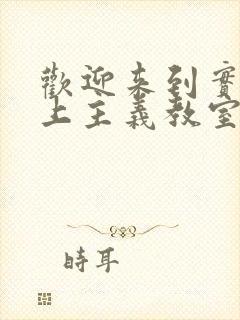 歡迎來到實
上主義教室
時耳